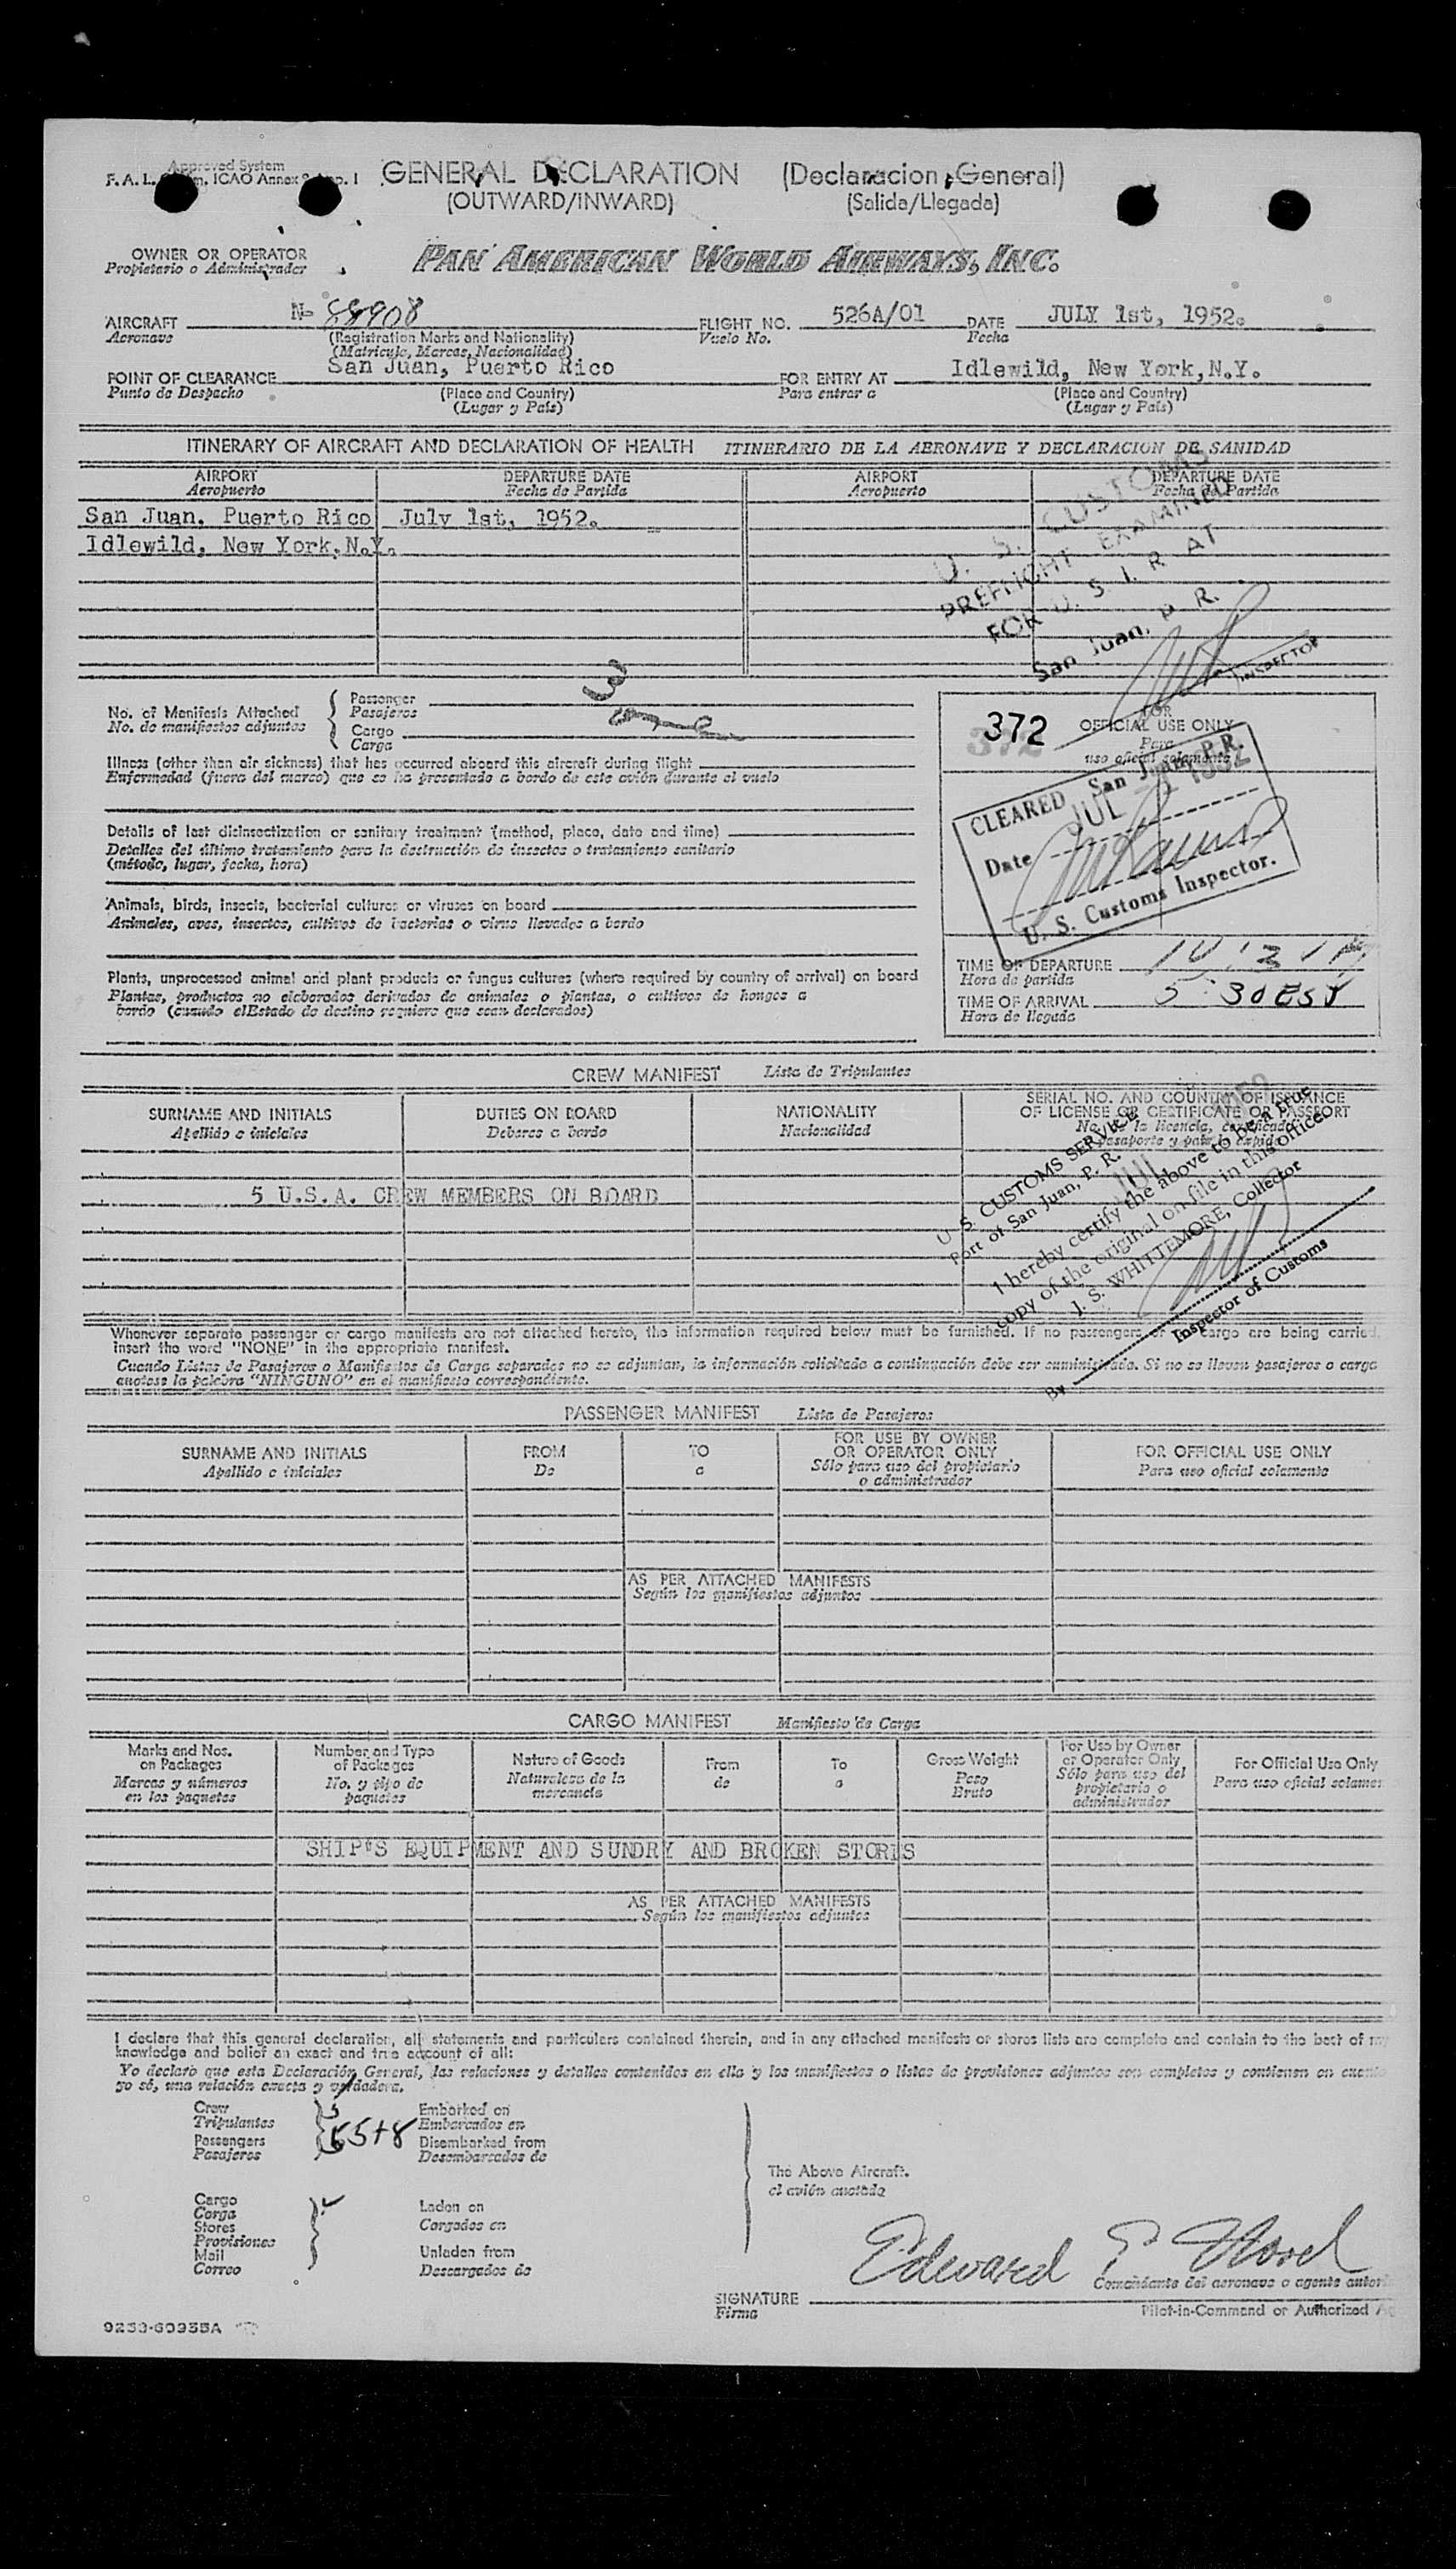 Approved System
GENERAL DECLARATION (Declaracion General)
(OUTWARD/INWARD) (Salida/Llegada)
OWNER OR OPERATOR
Propietario o Administrador
PAN AMERICAN WORLD AIRWAYS, INC.
AIRCRAFT N- 88908 FLIGHT NO. 526A/01 DATE JULY 1st, 1952.
Aeronave (Registration Marks and Nationality) Vuelo No. Fecha
(Matricula, Marcas, Nacionalidad)
POINT OF CLEARANCE San Juan, Puerto Rico FOR ENTRY AT Idlewild, New York, N.Y.
Punto de Despacho (Place and Country) Para entrar a (Place and Country)
(Lugar y País) (Lugar y País)
ITINERARY OF AIRCRAFT AND DECLARATION OF HEALTH ITINERARIO DE LA AERONAVE Y DECLARACION DE SANIDAD
AIRPORT DEPARTURE DATE AIRPORT DEPARTURE DATE
Aeropuerto Fecha de Partida Aeropuerto Fecha de Partida
San Juan. Puerto Rico July 1st, 1952.
Idlewild, New York, N.Y.
U. S. CUSTOMS
PREFLIGHT EXAMINED
FOR U. S. I. R. AT
San Juan, P. R.
INSPECTOR
No. of Manifests Attached Passenger 3
No. de manifiestos adjuntos Pasajeros
Cargo
Carga
Illness (other than air sickness) that has occurred aboard this aircraft during flight
Enfermedad (fuera del mareo) que se ha presentado a bordo de este avión durante el vuelo
Details of last disinsectization or sanitary treatment (method, place, date and time)
Detalles del último tratamiento para la destrucción de insectos o tratamiento sanitario
(método, lugar, fecha, hora)
Animals, birds, insects, bacterial cultures or viruses on board
Animales, aves, insectos, cultivos de bacterias o virus llevados a bordo
Plants, unprocessed animal and plant products or fungus cultures (where required by country of arrival) on board
Plantas, productos no elaborados derivados de animales o plantas, o cultivos de hongos a
bordo (cuando el Estado de destino requiere que sean declarados)
372 372
FOR
OFFICIAL USE ONLY
Para
uso oficial solamente
CLEARED San Juan, P.R.
Date JUL 1 1952
U. S. Customs Inspector.
TIME OF DEPARTURE
Hora de partida
TIME OF ARRIVAL 5:30 EST
Hora de llegada
CREW MANIFEST Lista de Tripulantes
SURNAME AND INITIALS DUTIES ON BOARD NATIONALITY SERIAL NO. AND COUNTRY OF ISSUANCE
OF LICENSE OR CERTIFICATE OR PASSPORT
Apellido e iniciales Deberes a bordo Nacionalidad
5 U.S.A. CREW MEMBERS ON BOARD
U. S. CUSTOMS SERVICE
Port of San Juan, P. R.
JUL 1952
I hereby certify the above to be a true
copy of the original on file in this office.
J. S. WHITTEMORE, Collector
By
Inspector of Customs
Whenever separate passenger or cargo manifests are not attached hereto, the information required below must be furnished. If no passengers or cargo are being carried,
insert the word "NONE" in the appropriate manifest.
Cuando Listas de Pasajeros o Manifiestos de Carga separados no se adjuntan, la información solicitada a continuación debe ser suministrada. Si no se llevan pasajeros o carga
anotese la palabra "NINGUNO" en el manifiesto correspondiente.
PASSENGER MANIFEST Lista de Pasajeros
SURNAME AND INITIALS FROM TO FOR USE BY OWNER OR OPERATOR ONLY FOR OFFICIAL USE ONLY
Apellido e iniciales De a Sólo para uso del propietario o administrador Para uso oficial solamente
AS PER ATTACHED MANIFESTS
Según los manifiestos adjuntos
CARGO MANIFEST Manifiesto de Carga
Marks and Nos. on Packages Number and Type of Packages Nature of Goods From To Gross Weight For Use by Owner or Operator Only For Official Use Only
Marcas y números en los paquetes No. y tipo de paquetes Naturaleza de la mercancía de a Peso Bruto Sólo para uso del propietario o administrador Para uso oficial solamen
SHIP'S EQUIPMENT AND SUNDRY AND BROKEN STORES
AS PER ATTACHED MANIFESTS
Según los manifiestos adjuntos
I declare that this general declaration, all statements and particulars contained therein, and in any attached manifests or stores lists are complete and contain to the best of my
knowledge and belief an exact and true account of all:
Yo declaro que esta Declaración General, las relaciones y detalles contenidos en ella y los manifiestos o listas de provisiones adjuntos son completos y contienen en cuanto
yo sé, una relación exacta y verdadera.
Crew 5 Embarked on
Tripulantes Embarcados en
Passengers 55+8 Disembarked from
Pasajeros Desembarcados de
The Above Aircraft.
el avión anotado
Cargo
Carga Laden on
Stores Cargados en
Provisiones
Mail Unladen from
Correo Descargados de
SIGNATURE Edward
Firma Comandante del aeronave o agente autori
Pilot-in-Command or Authorized Ag
9233-60955A